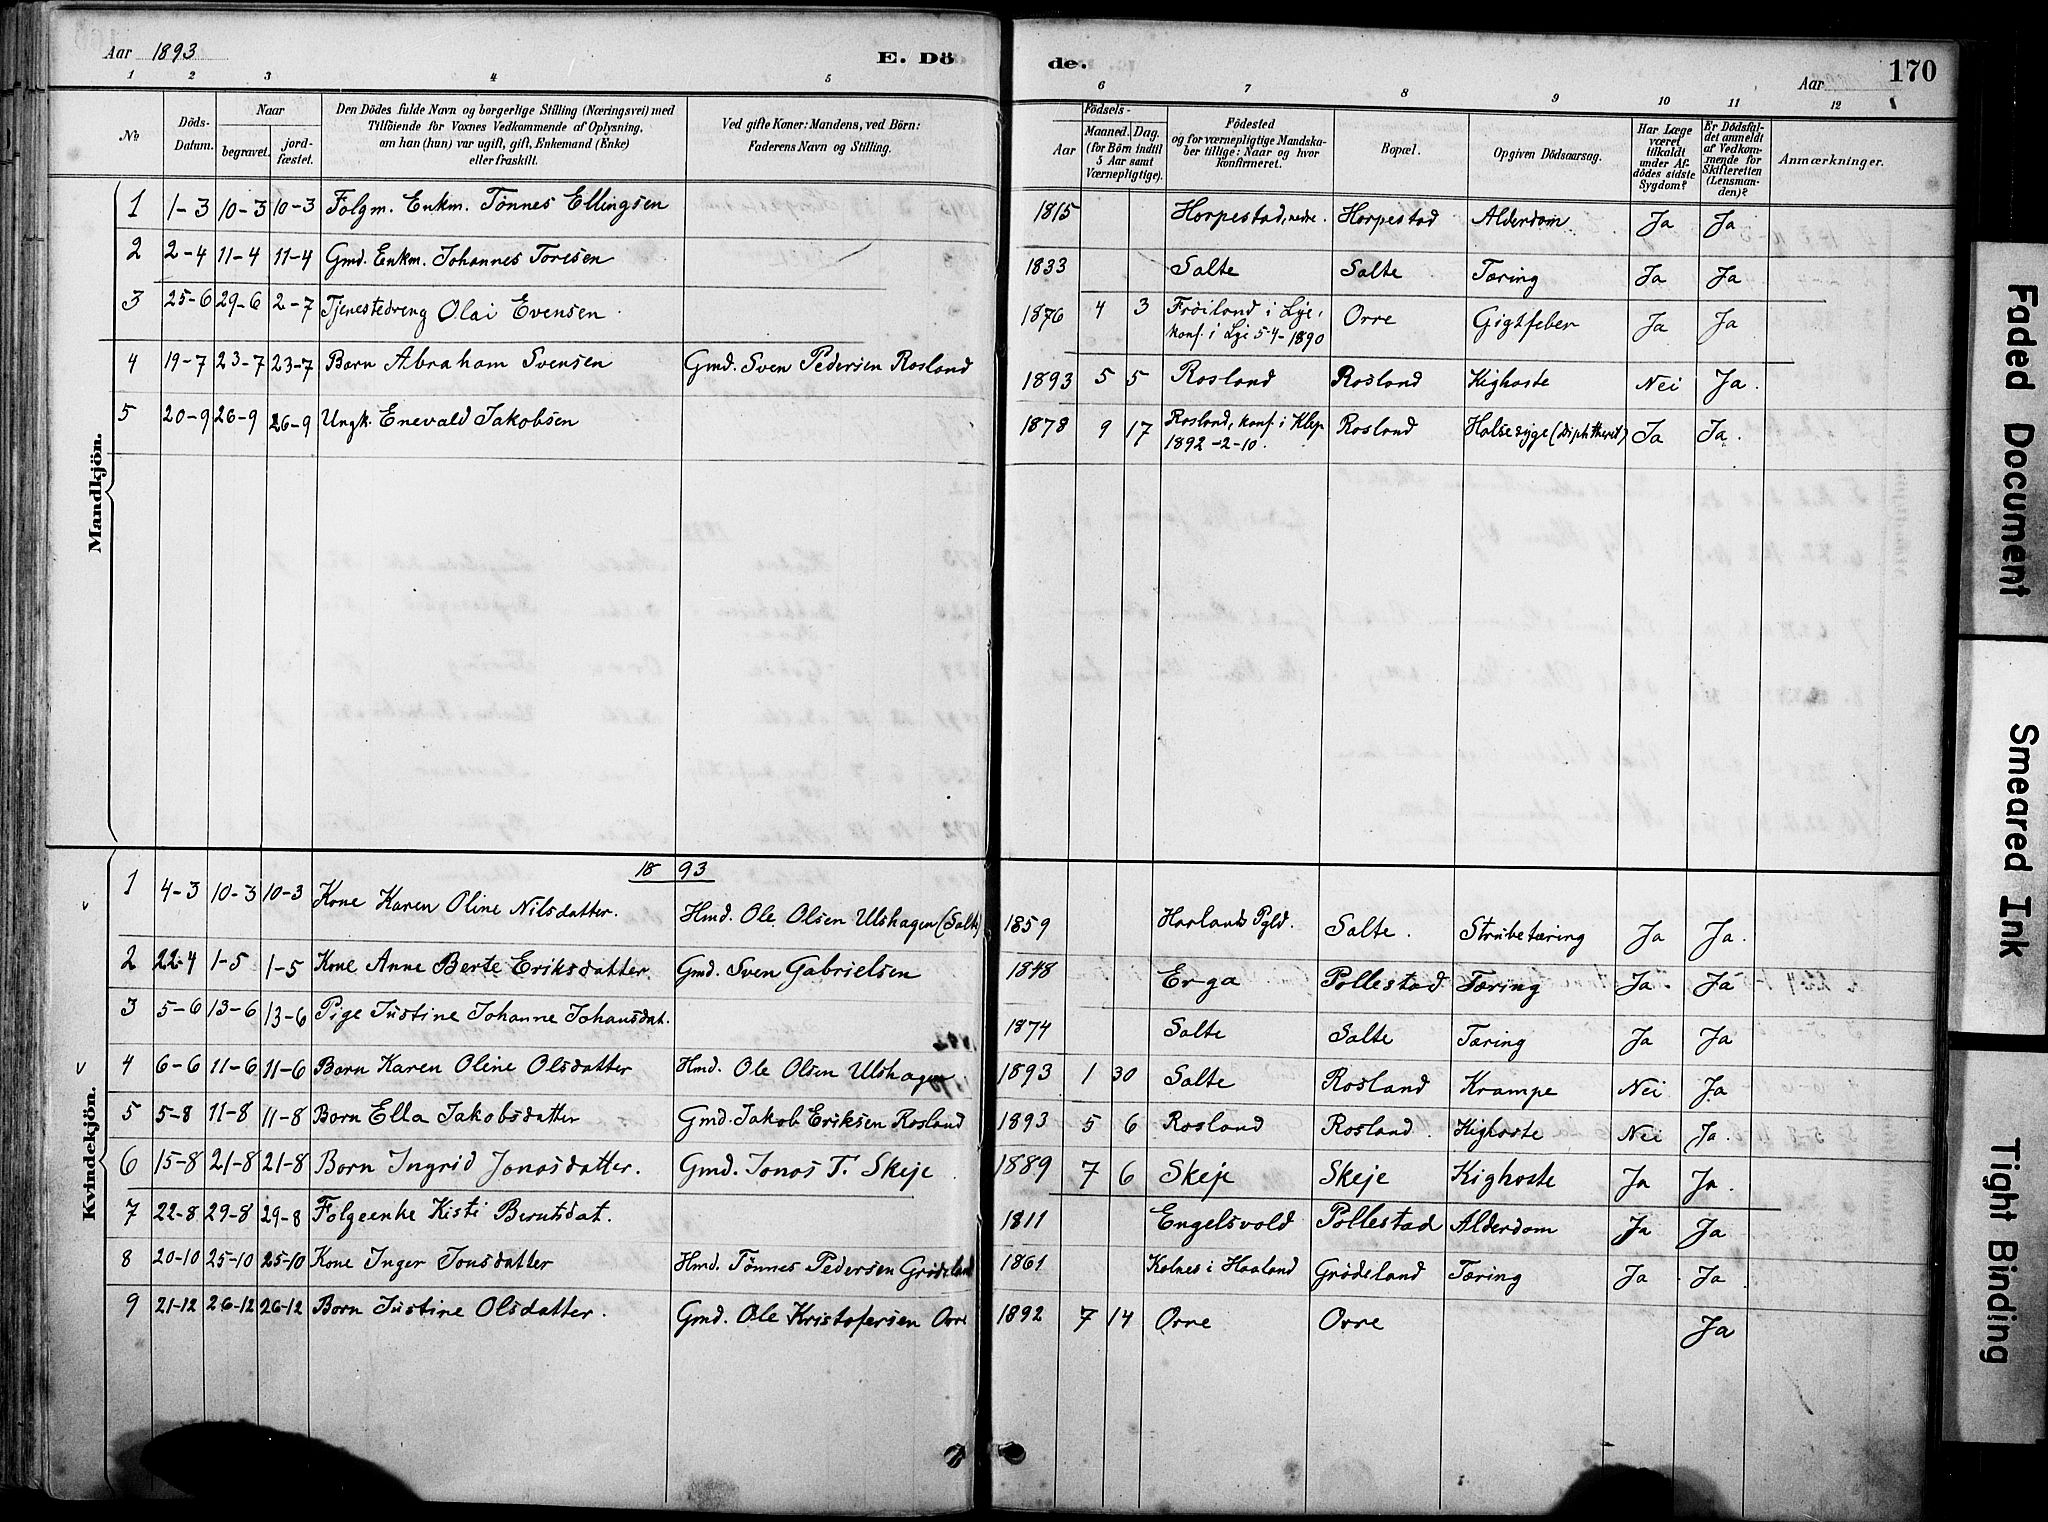 Aar 1893
E. Dö
de.
Aar
170
1 2 3 4 5 6 7 8 9 10 11 12
No
Döds-Datum.
Naar
begravet.
jord-fæstet.
Den Dödes fulde Navn og borgerlige Stilling (Næringsvei) med
Tilföiende for Voxnes Vedkommende af Oplysning,
om han (hun) var ugift, gift, Enkemand (Enke)
eller fraskilt.
Ved gifte Koner: Mandens, ved Börn:
Faderens Navn og Stilling.
Födsels-
Aar
Maaned. Dag.
(for Börn indtil
5 Aar samt
Værnepligtige).
Födested
og for værnepligtige Mandska-
ber tillige: Naar og hvor
konfirmeret.
Bopæl.
Opgiven Dödsaarsag.
Har Læge
været
tilkaldt
under Af-
dödes sidste
Sygdom?
Er Dödsfal-
det anmeldt
af Vedkom-
mende for
Skifteretten
(Lensman-
den)?
Anmærkninger.
Mandkjön.
1 1-3 10-3 10-3 Folgm. Enkm. Tönnes Ellingsen 1815 Horpestad, nedre. Horpestad Alderdom Ja Ja
2 2-4 11-4 11-4 Gmd. Enkm. Johannes Toresen 1833 Salte Salte Tæring Ja Ja
3 25-6 29-6 2-7 Tjenestedreng Olai Evensen 1876 4 3 Fröiland i Lye, Orre Gigtfeber Ja Ja
konf. i Lye 5-4-1890
4 19-7 23-7 23-7 Barn Abraham Svensen Gmd. Sven Pedersen Rosland 1893 5 5 Rosland Rosland Kighoste Nei Ja.
5 20-9 26-9 26-9 Ungk. Enevald Jakobsen 1878 9 17 Rosland, konf. i Klep Rosland Halsesyge (Diphtherit) Ja Ja.
1892-2-10.
Kvindekjön.
18 93
1 4-3 10-3 10-3 Kone Karen Oline Nilsdatter. Hmd. Ole Olsen Ulshagen (Salte) 1859 Haalands Pgld. Salte. Strubetæring Ja Ja.
2 22-4 1-5 1-5 Kone Anne Berte Eriksdatter. Gmd. Sven Gabrielsen 1848 Erga Pollestad Tæring Ja Ja
3 5-6 13-6 13-6 Pige Justine Johanne Johansdat. 1874 Salte Salte Tæring Ja Ja
4 6-6 11-6 11-6 Barn Karen Oline Olsdatter Hmd. Ole Olsen Ulshagen 1893 1 30 Salte Rosland Krampe Nei Ja
5 5-8 11-8 11-8 Barn Ella Jakobsdatter Gmd. Jakob Eriksen Rosland 1893 5 6 Rosland Rosland. Kighoste Nei Ja.
6 15-8 21-8 21-8 Barn Ingrid Jonasdatter. Gmd. Jonas T. Skeje 1889 7 6 Skeje Skeje Kighoste Ja Ja.
7 22-8 29-8 29-8 Folgeenke Kisti Berntsdat. 1811 Engelsvold Pollestad Alderdom Ja Ja
8 20-10 25-10 25-10 Kone Inger Jonsdatter Hmd. Tönnes Pedersen Grödeland 1861 Kolnes i Haaland Grödeland Tæring Ja Ja
9 21-12 26-12 26-12 Barn Justine Olsdatter. Gmd. Ole Kristofersen Orre 1892 7 14 Orre Orre Ja
Faded Document
Smeared Ink
Tight Binding